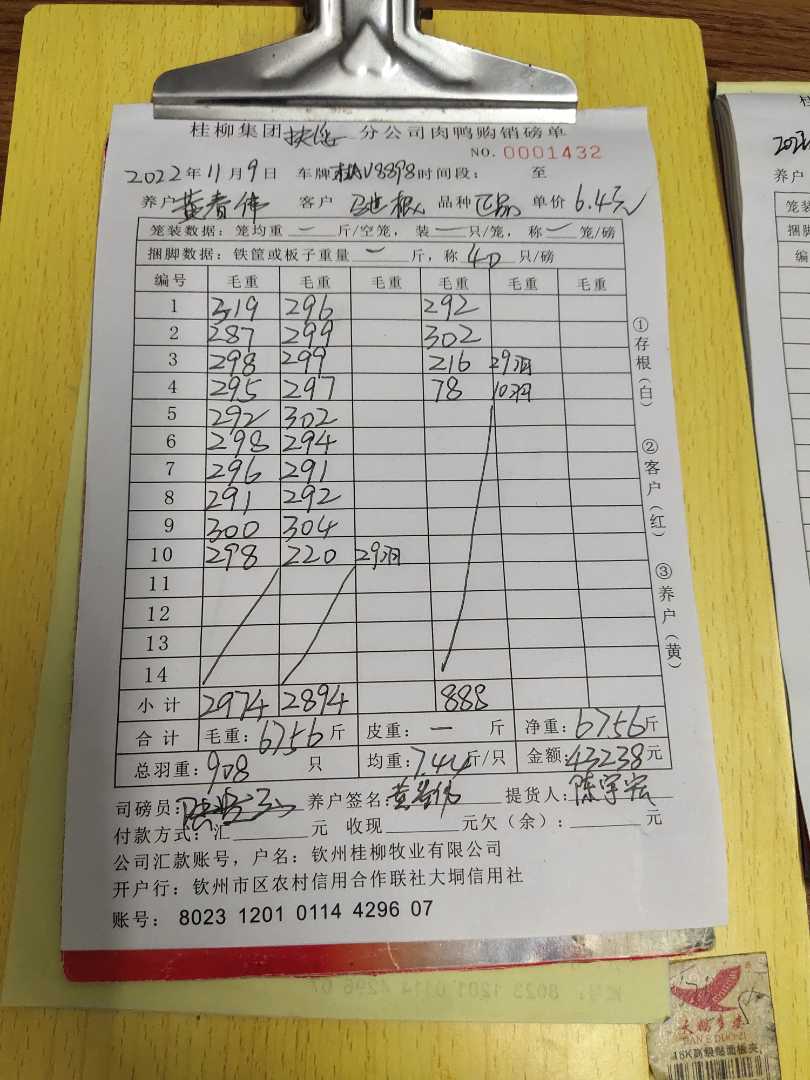 桂柳集团 分公司肉鸭购销磅单
NO. 0001432
2022年11月9日 车牌 V8898 时间段: 至
养户 黄春伟 客户 品种 正品 单价 6.4元
笼装数据: 笼均重 一 斤/空笼, 装 一 只/笼, 称 一 笼/磅
捆脚数据: 铁筐或板子重量 一 斤, 称 40 只/磅
编号 毛重 毛重 毛重 毛重 毛重 毛重
1 319 296 292
2 287 299 302
3 298 299 216 29羽
4 295 297 78 10羽
5 292 302
6 298 294
7 296 291
8 291 292
9 300 304
10 298 220 29羽
11
12
13
14
小计 2974 2894 888
合计 毛重: 6756 斤 皮重: 一 斤 净重: 6756 斤
总羽重: 908 只 均重: 7.44 斤/只 金额: 43238 元
司磅员: 养户签名: 黄春伟 提货人: 陈宇宏
付款方式: 汇 元 收现 元欠(余): 元
公司汇款账号, 户名: 钦州桂柳牧业有限公司
开户行: 钦州市区农村信用合作联社大垌信用社
账号: 8023 1201 0114 4296 07
①存根(白)
②客户(红)
③养户(黄)
桂
养户
笼装
捆脚
编
18K高级贴面板夹